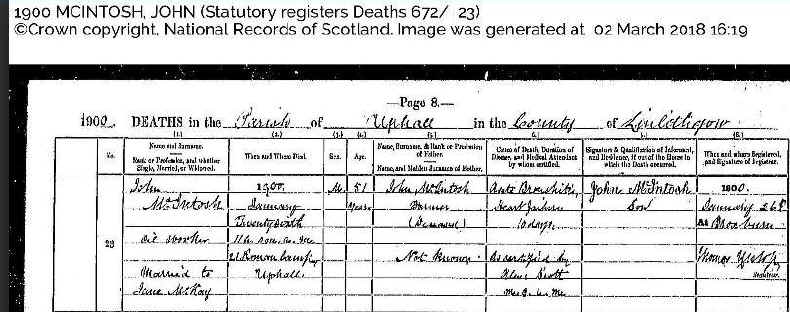 1900 MCINTOSH, JOHN (Statutory registers Deaths 672/ 23)
©Crown copyright, National Records of Scotland. Image was generated at 02 March 2018 16:19
—Page 8.—
1900. DEATHS in the Parish of Uphall in the County of Linlithgow
(1.) (2.) (3.) (4.) (5.) (6.) (7.) (8.)
No. Name and Surname. Rank or Profession, and whether Single, Married, or Widowed.
When and Where Died.
Sex.
Age.
Name, Surname, & Rank or Profession of Father. Name, and Maiden Surname of Mother.
Cause of Death, Duration of Disease, and Medical Attendant by whom certified.
Signature & Qualification of Informant, and Residence, if out of the House in which the Death occurred.
When and where Registered, and Signature of Registrar.
John 1900. M. 51 John McIntosh Acute Bronchitis John McIntosh 1900.
McIntosh January Years Farmer Heart failure Son January 26th
(Deceased) 10 days At Broxburn
23 Oil worker
Not known As certified by Thomas
Married to Uphall. Scott Registrar.
Jane McKay